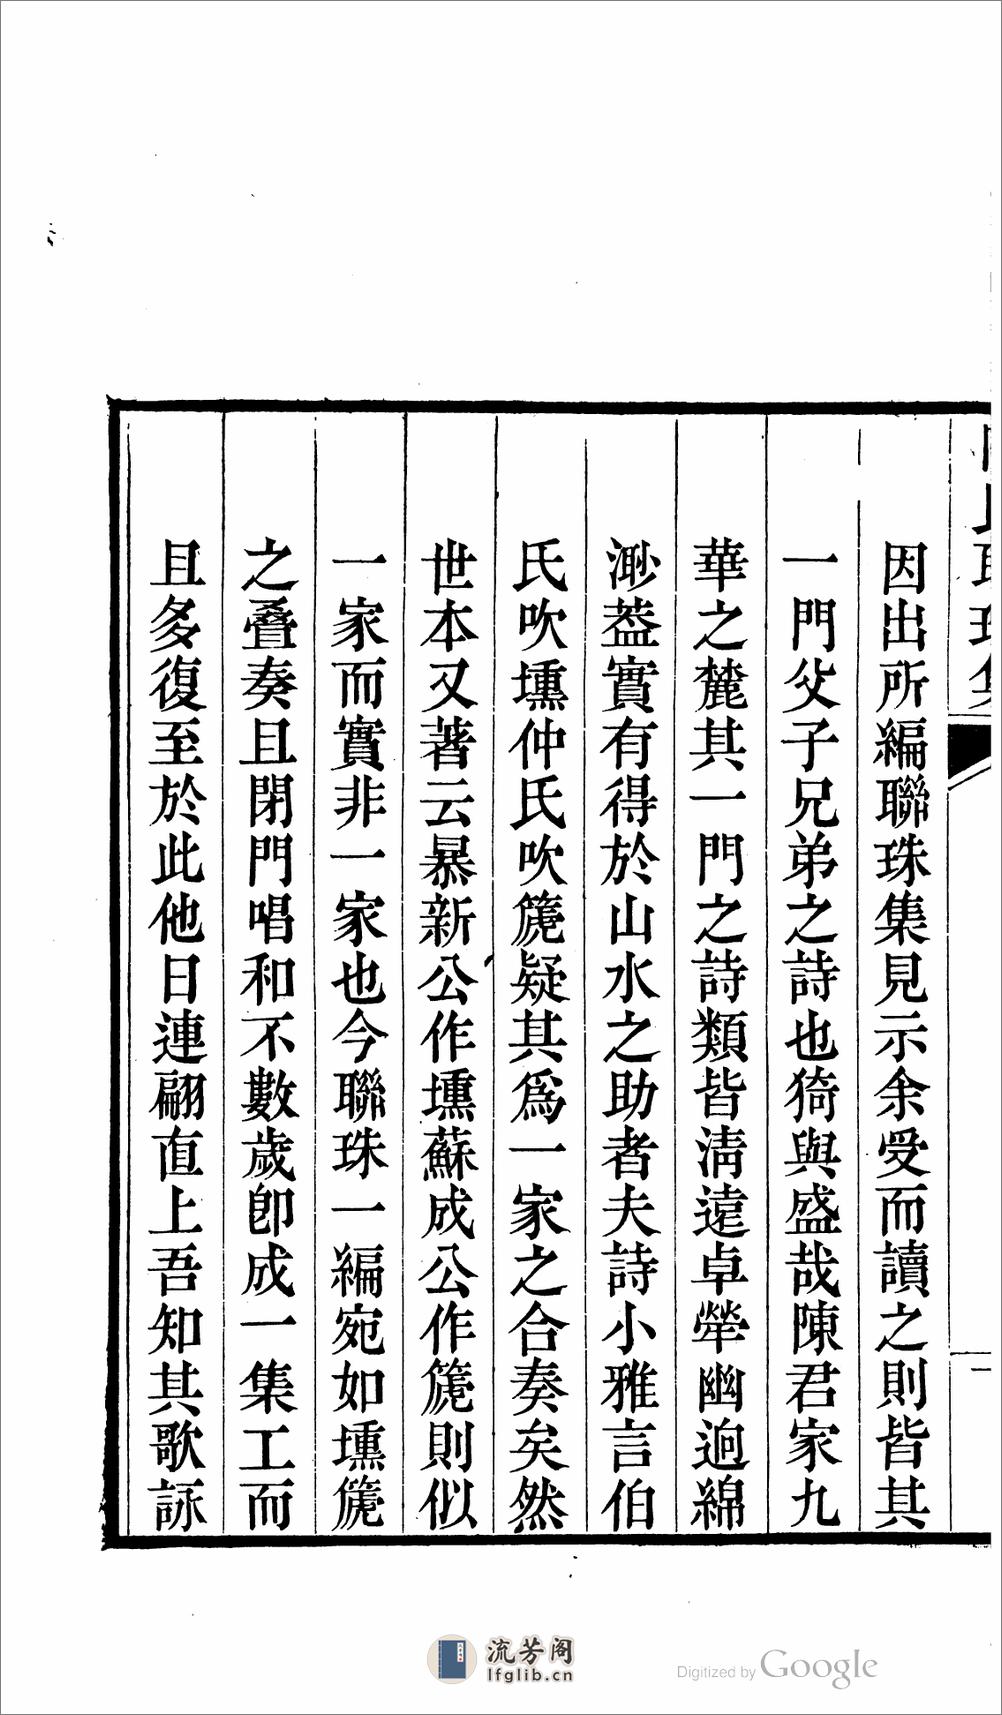 因出所編聯珠集見示余受而讀之則皆其
一門父子兄弟之詩也猗與盛哉陳君家九
華之麓其一門之詩類皆淸遠卓犖幽逈綿
渺葢實有得於山水之助者夫詩小雅言伯
氏吹壎仲氏吹篪疑其爲一家之合奏矣然
世本又著云暴新公作壎蘇成公作篪則似
一家而實非一家也今聯珠一編宛如壎篪
之疊奏且閉門唱和不數歲卽成一集工而
且多復至於此他日連翩直上吾知其歌詠
流芳阁
lfglib.cn
Digitized by Google